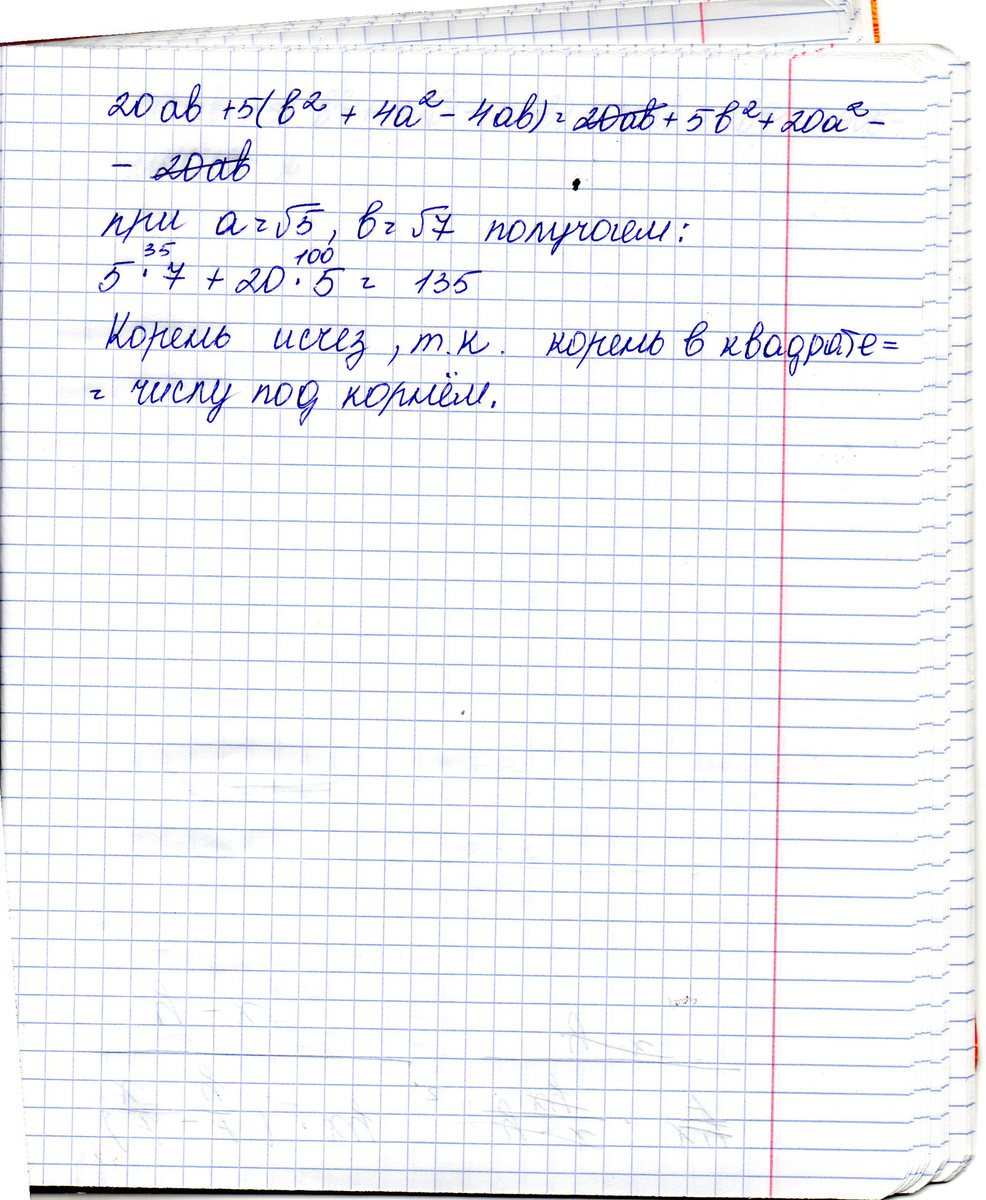 20ab + 5(b² + 4a² - 4ab) = 20ab + 5b² + 20a² -
- 20ab
при a = √5, b = √7 получаем:
35 100
5 · 7 + 20 · 5 = 135
Корень исчез, т.к. корень в квадрате =
= числу под корнём.